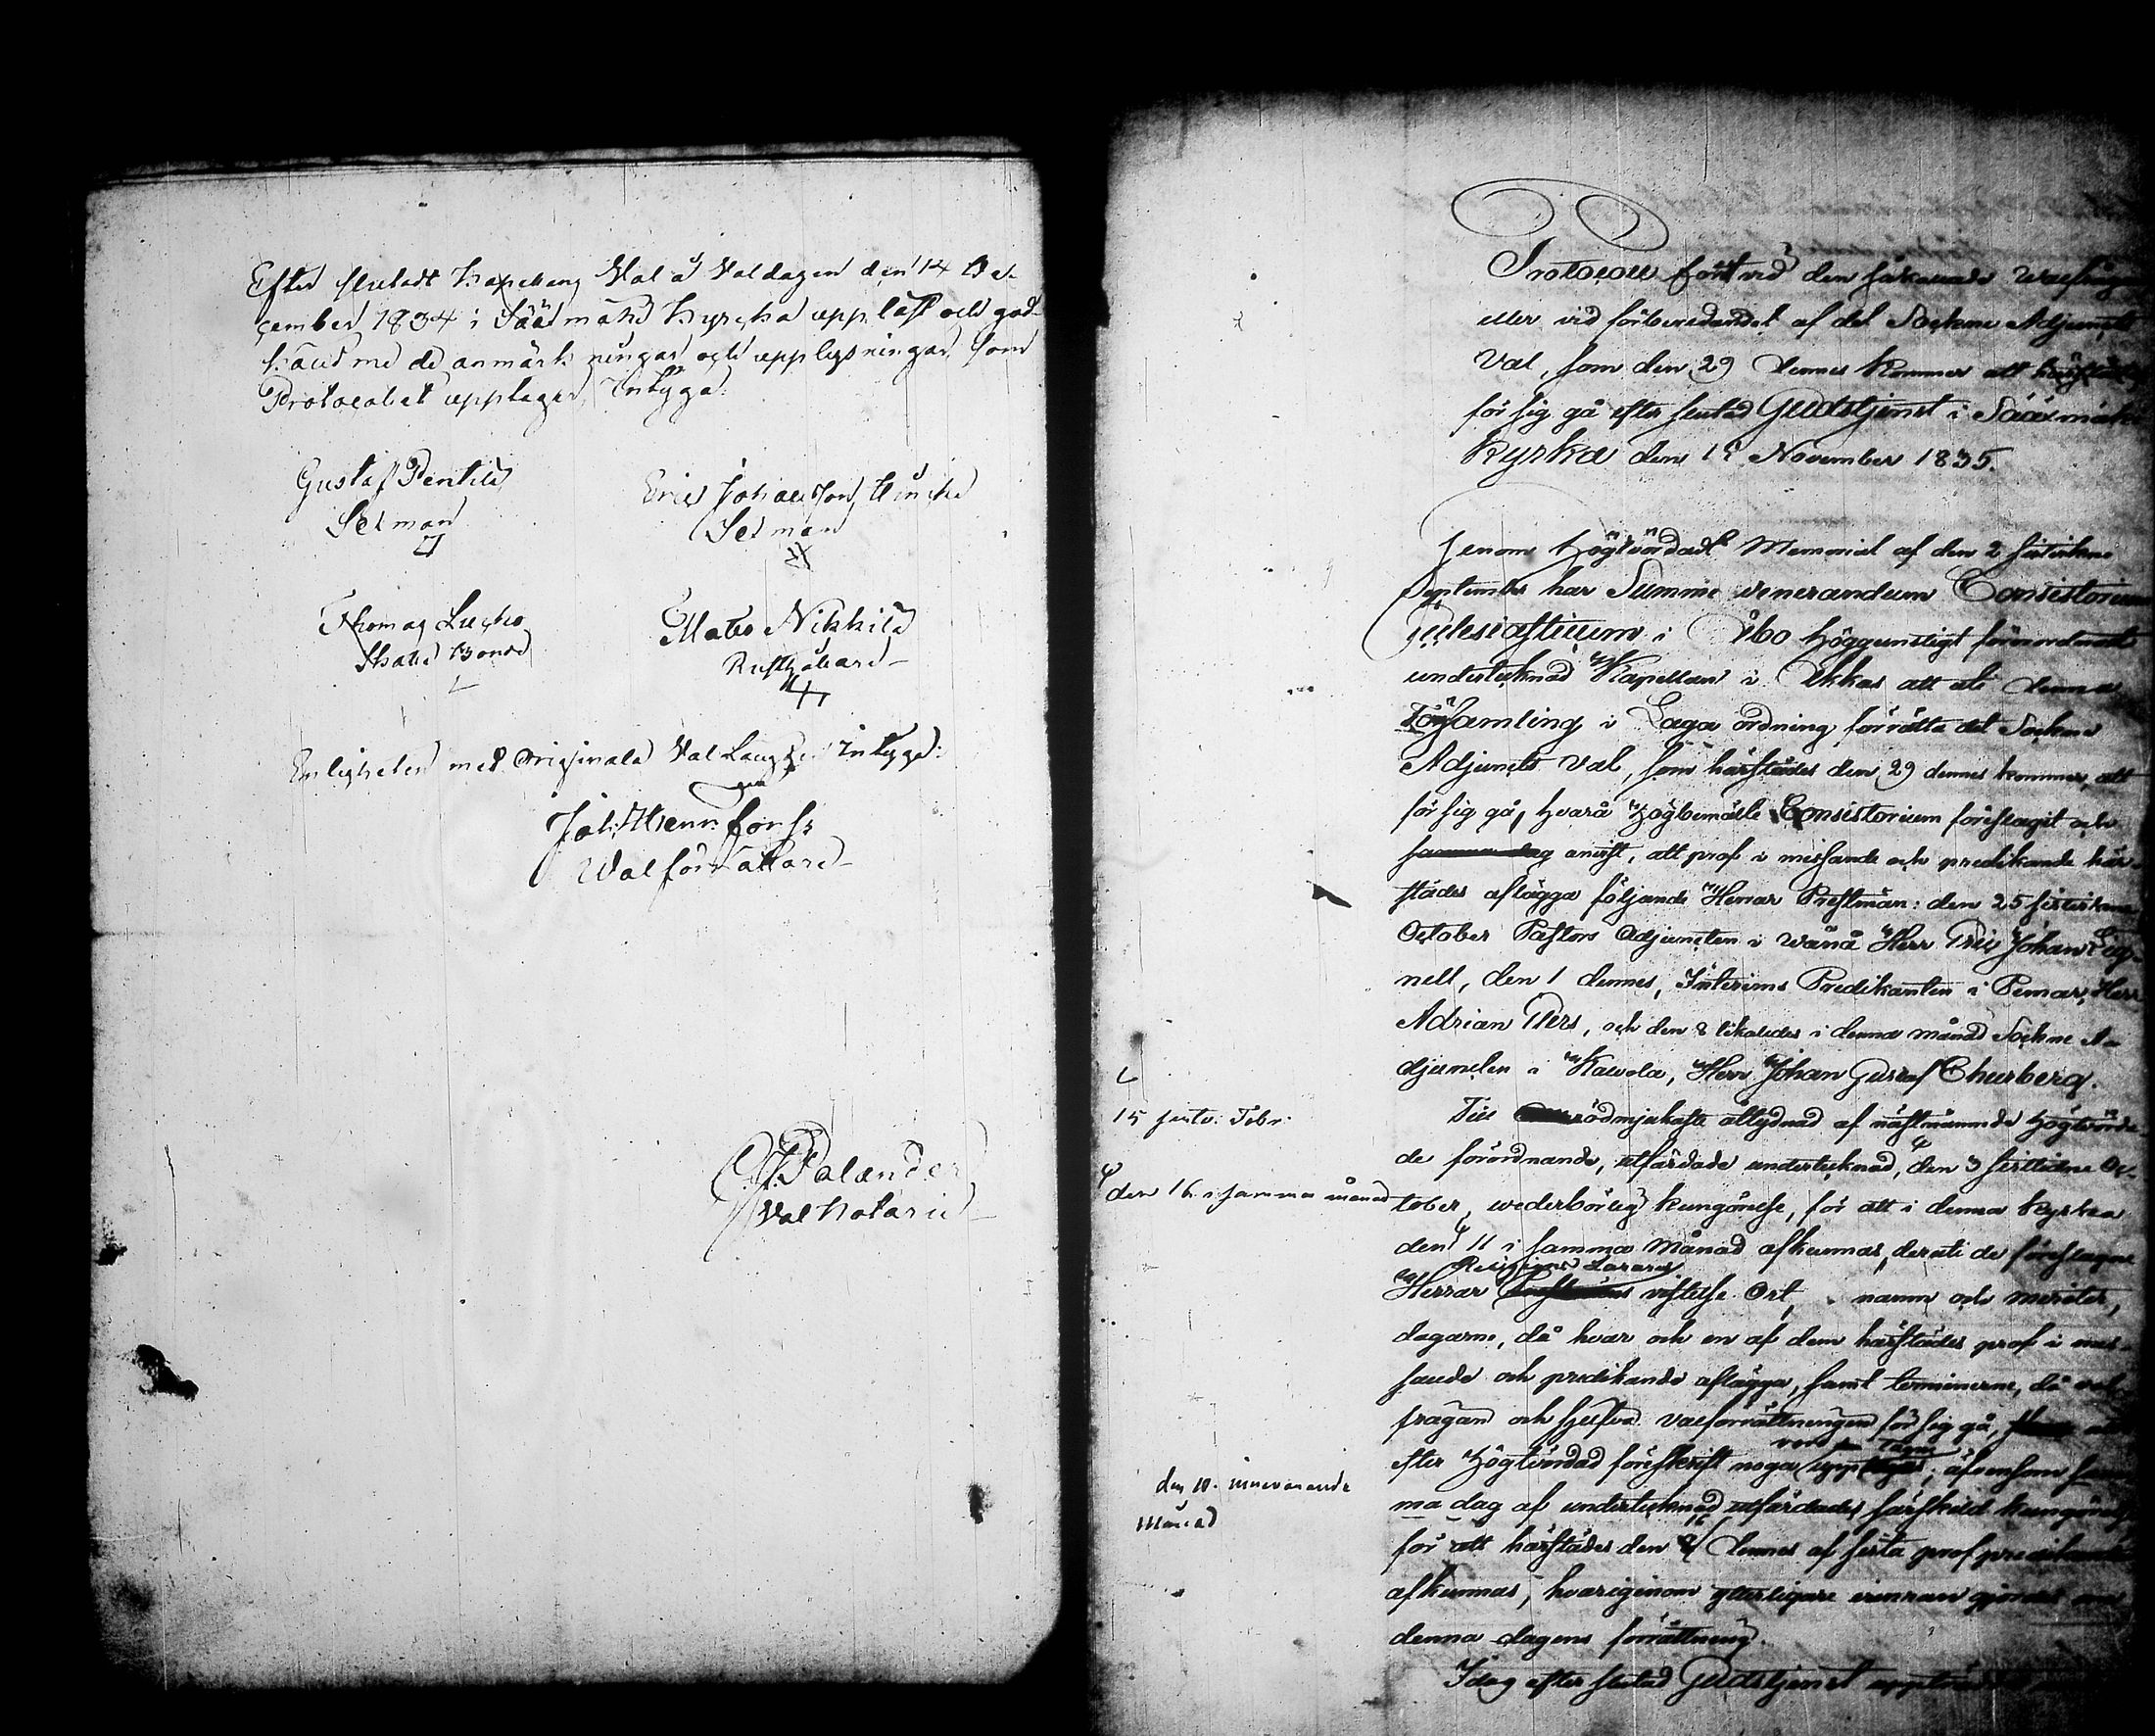 Efter slutadt Kapellans Val å Valdagen den 14 De-
cember 1834 i Sääxmäki Kyrcka uppläst och god-
känd med de anmärkningar och upplysningar som
Protocollet upptager, Intyga:
Gustaf Pentilä
Sexman
Eric Johansson Uncka
Sexman
Thomas Lucko
Skatte Bonde
Matts Nikkilä
Rusthållare
Enligheten med Originala Val Längden Intyga:
Joh. Henr. Forss
Valförrättare
Palander
Val Notarie
Protocoll fördt vid den såkallade Walfrågan
eller vid förberedandet af det Sockne Adjuncts
Val, som den 29 dennes kommer att härstädes
för sig gå efter slutad Gudstjenst i Sääxmäki
Kyrka den 15 November 1835.
Genom Högvördadt Memorial af den 2 sistledne
September har Summe venerandum Consistorium
Ecclesiasticum i Åbo höggunstigt förordnadt
undertecknad Kapellan i Akkas att uti denna
Församling i Laga ordning förrätta det Sockne
Adjuncts Val, som härstädes den 29 dennes kommer att
för sig gå, hvarå Högbemälte Consistorium föreslagit och
anvist, att prof i messande och predikande här-
städes aflägga följande Herrar Prestmän: den 25 sistledne
October Pastors Adjuncten i Wånå Herr Eric Johan Eg-
nell, den 1 dennes, Interims Predikanten i Pemar, Herr
Adrian Pers, och den 8 likaledes i denna månad Sockne A-
djuncten i Kauvola, Herr Johan Gustaf Churberg.
15 siste. Febr.
Till ödmjukaste åtlydnad af nästnämnde Högvörda-
de förordnande, utfärdade undertecknad, den 3 sistledne Oc-
den 16 i samma månad
tober, wederbörlig kungörelse, för att i denna Kyrka
den 11 i samma Månad afkunnas, deruti de föreslagne
Religions Lärares
Herrar vistelse Ort, namn och meriter,
dagarne, då hvar och en af dem härstädes prof i mes-
sande och predikande aflägga, samt terminerne, då val-
frågan och sjelfva valförrättningen för sig gå,
efter Högvördad föreskrift noga
den 10 innevarande
Månad
ma dag af undertecknad utfärdades särskild kungörelse
för att härstädes den 8 dennes af sista prof predikanten
afkunnas, hvarigenom ytterligare erinran gjordes om
denna dagens förrättning.
Idag efter slutad Gudstjenst